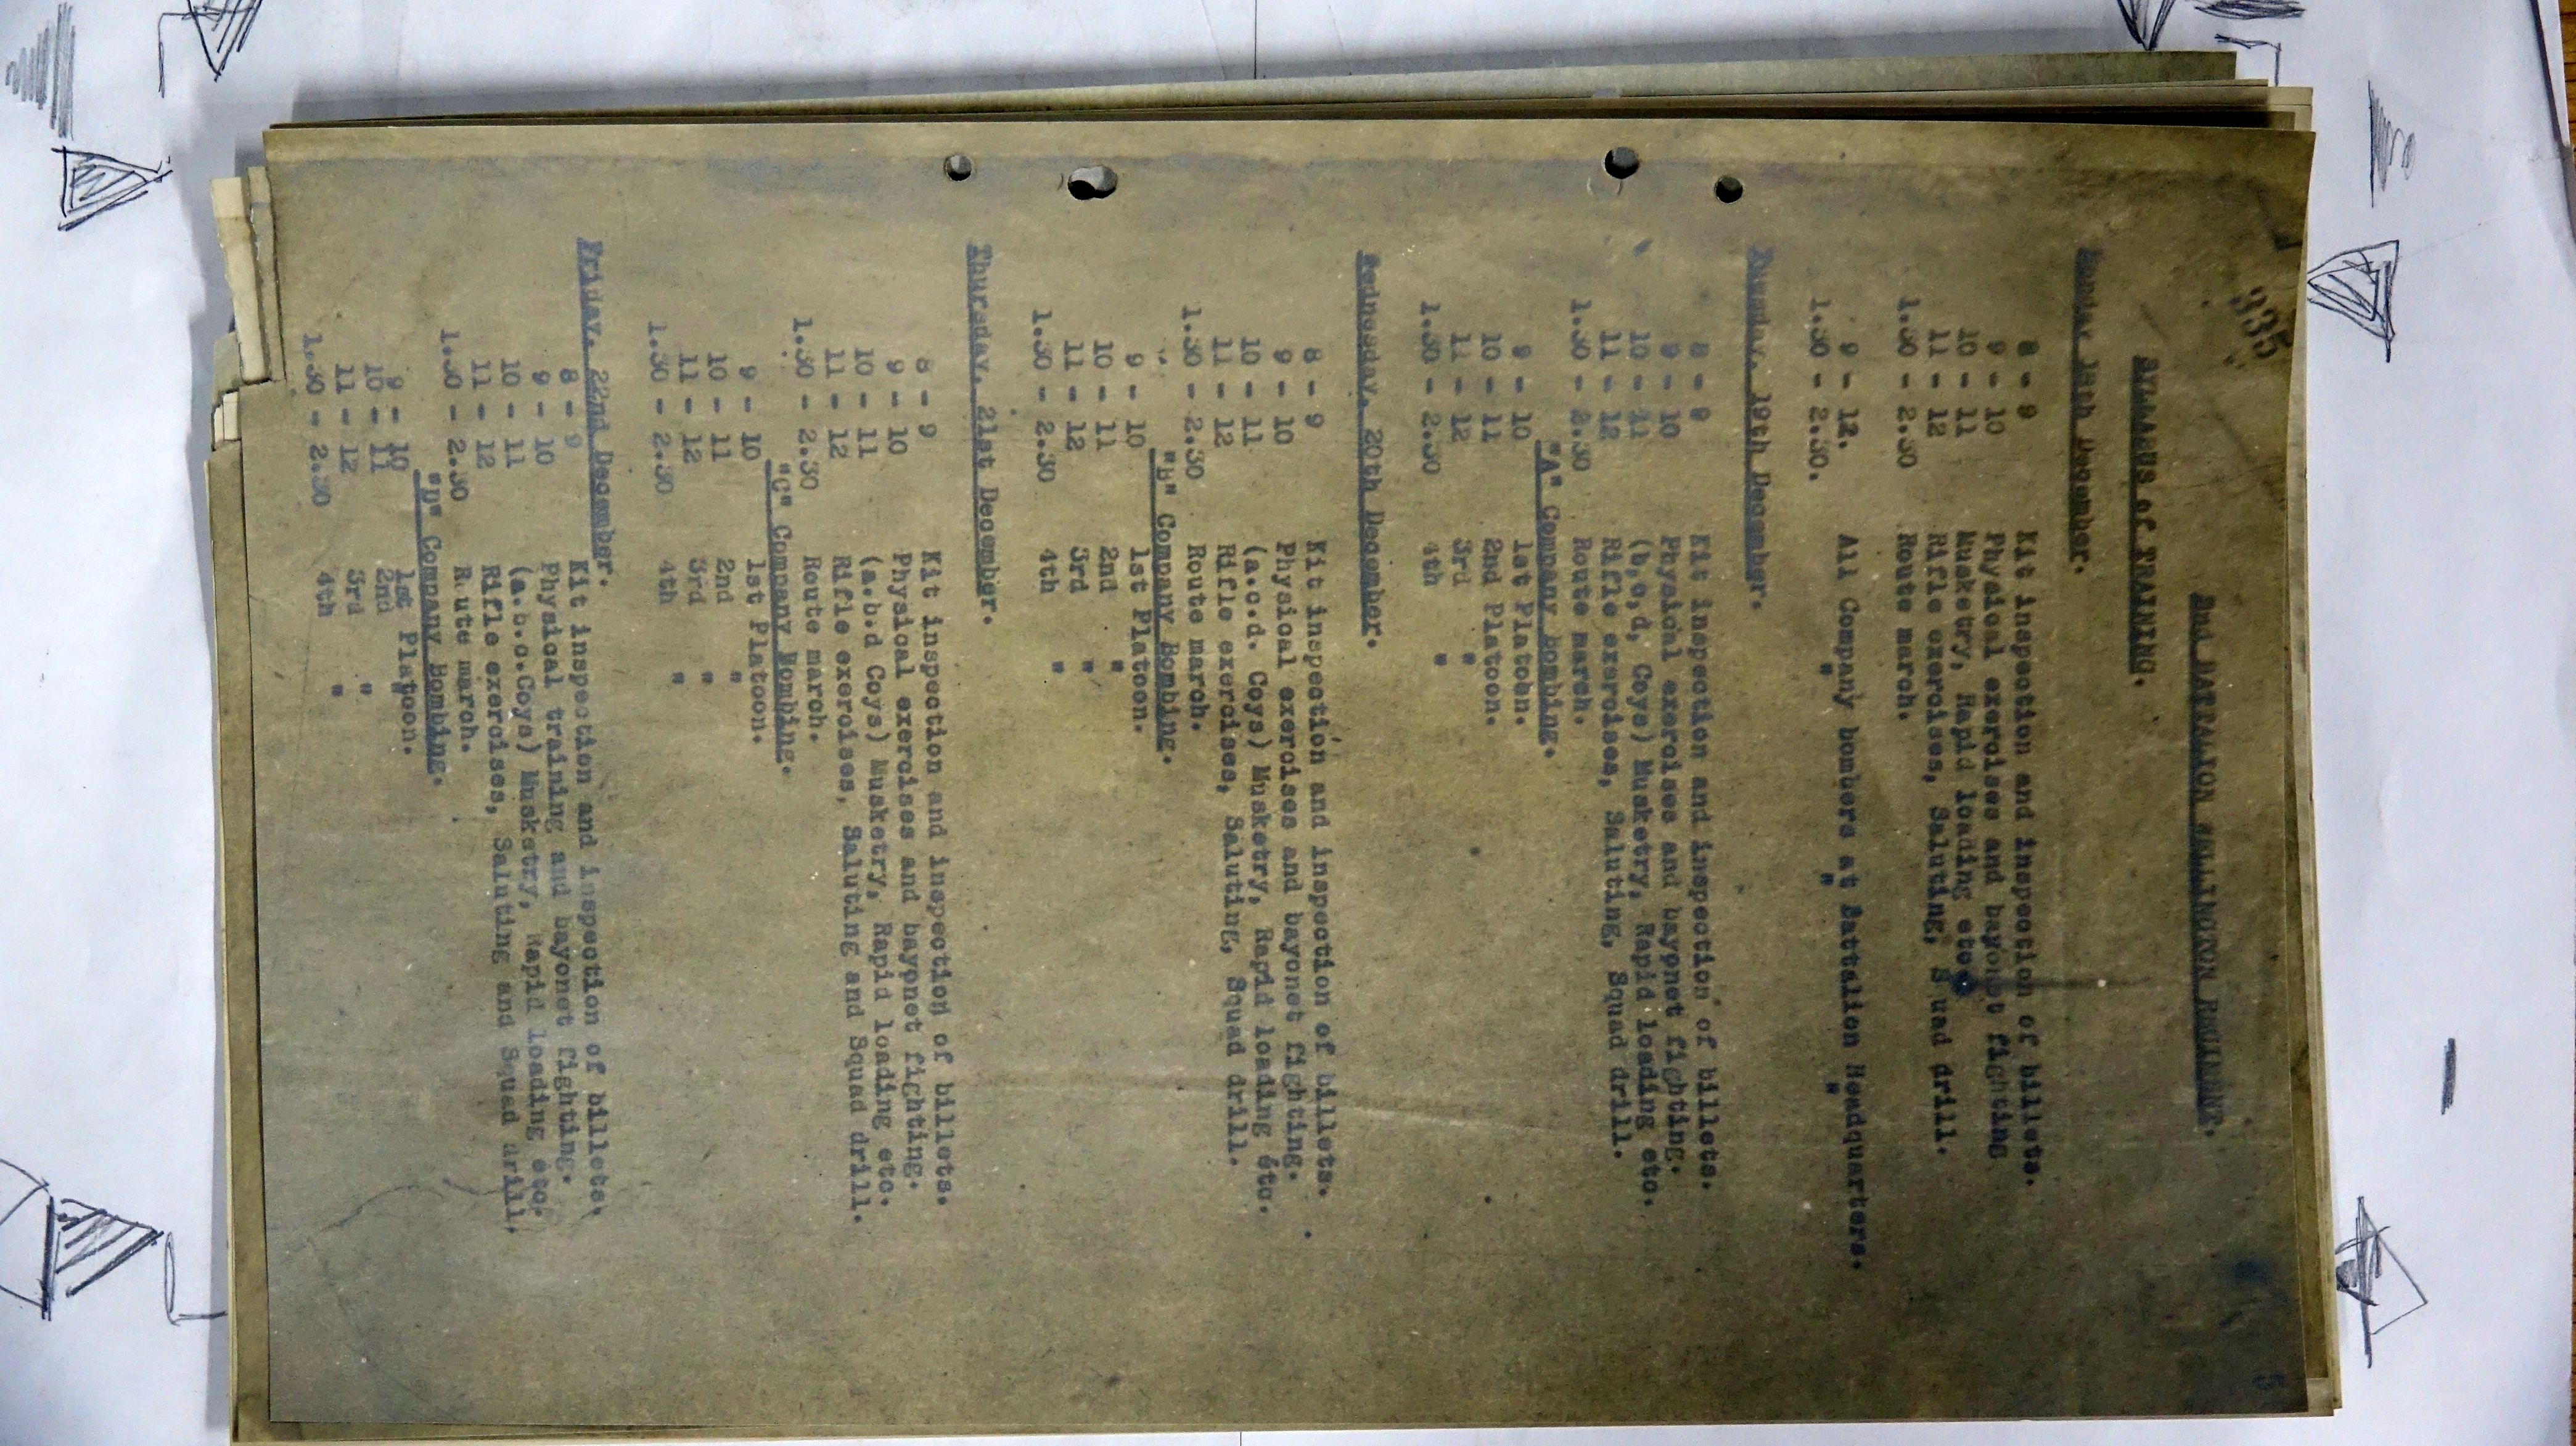 335
2nd BATTALION WELLINGTON REGIMENT.
SYLLABUS of TRAINING.
Monday 18th December.
8 - 9 Kit inspection and inspection of billets.
9 - 10 Physical exercises and bayonet fighting
10 - 11 Musketry, Rapid loading etc.
11 - 12 Rifle exercises, Saluting, S uad drill.
1.30 - 2.30 Route march.
9 - 12. All Company bombers at Battalion Headquarters.
1.30 - 2.30. " " "
Tuesday. 19th December.
8 - 9 Kit inspection and inspection of billets.
9 - 10 Physical exercises and baypnet fighting.
10 - 11 (b,c,d, Coys) Musketry, Rapid loading etc.
11 - 12 Rifle exercises, Saluting, Squad drill.
1.30 - 2.30 Route march.
"A" Company bombing.
9 - 10 1st Platoon.
10 - 11 2nd Platoon.
11 - 12 3rd "
1.30 - 2.30 4th "
Wednesday. 20th December.
8 - 9 Kit inspection and inspection of billets.
9 - 10 Physical exercises and bayonet fighting.
10 - 11 (a.c.d. Coys) Musketry, Rapid loading etc.
11 - 12 Rifle exercises, Saluting, Squad drill.
1.30 - 2.30 Route march.
"b" Company Bombing.
9 - 10 1st Platoon.
10 - 11 2nd "
11 - 12 3rd "
1.30 - 2.30 4th "
Thursday. 21st December.
8 - 9 Kit inspection and inspection of billets.
9 - 10 Physical exercises and baypnet fighting.
10 - 11 (a.b.d Coys) Musketry, Rapid loading etc.
11 - 12 Rifle exercises, Saluting and Squad drill.
1.30 - 2.30 Route march.
"C" Company Bombing.
9 - 10 1st Platoon.
10 - 11 2nd "
11 - 12 3rd "
1.30 - 2.30 4th "
Friday. 22nd December.
8 - 9 Kit inspection and inspection of billets.
9 - 10 Physical training and bayonet fighting.
10 - 11 (a.b.c.Coys) Musketry, Rapid loading etc.
11 - 12 Rifle exercises, Saluting and Squad drill.
1.30 - 2.30 R ute march.
"D" Company Bombing.
9 - 10 1st Platoon.
10 - 11 2nd "
11 - 12 3rd "
1.30 - 2.30 4th "